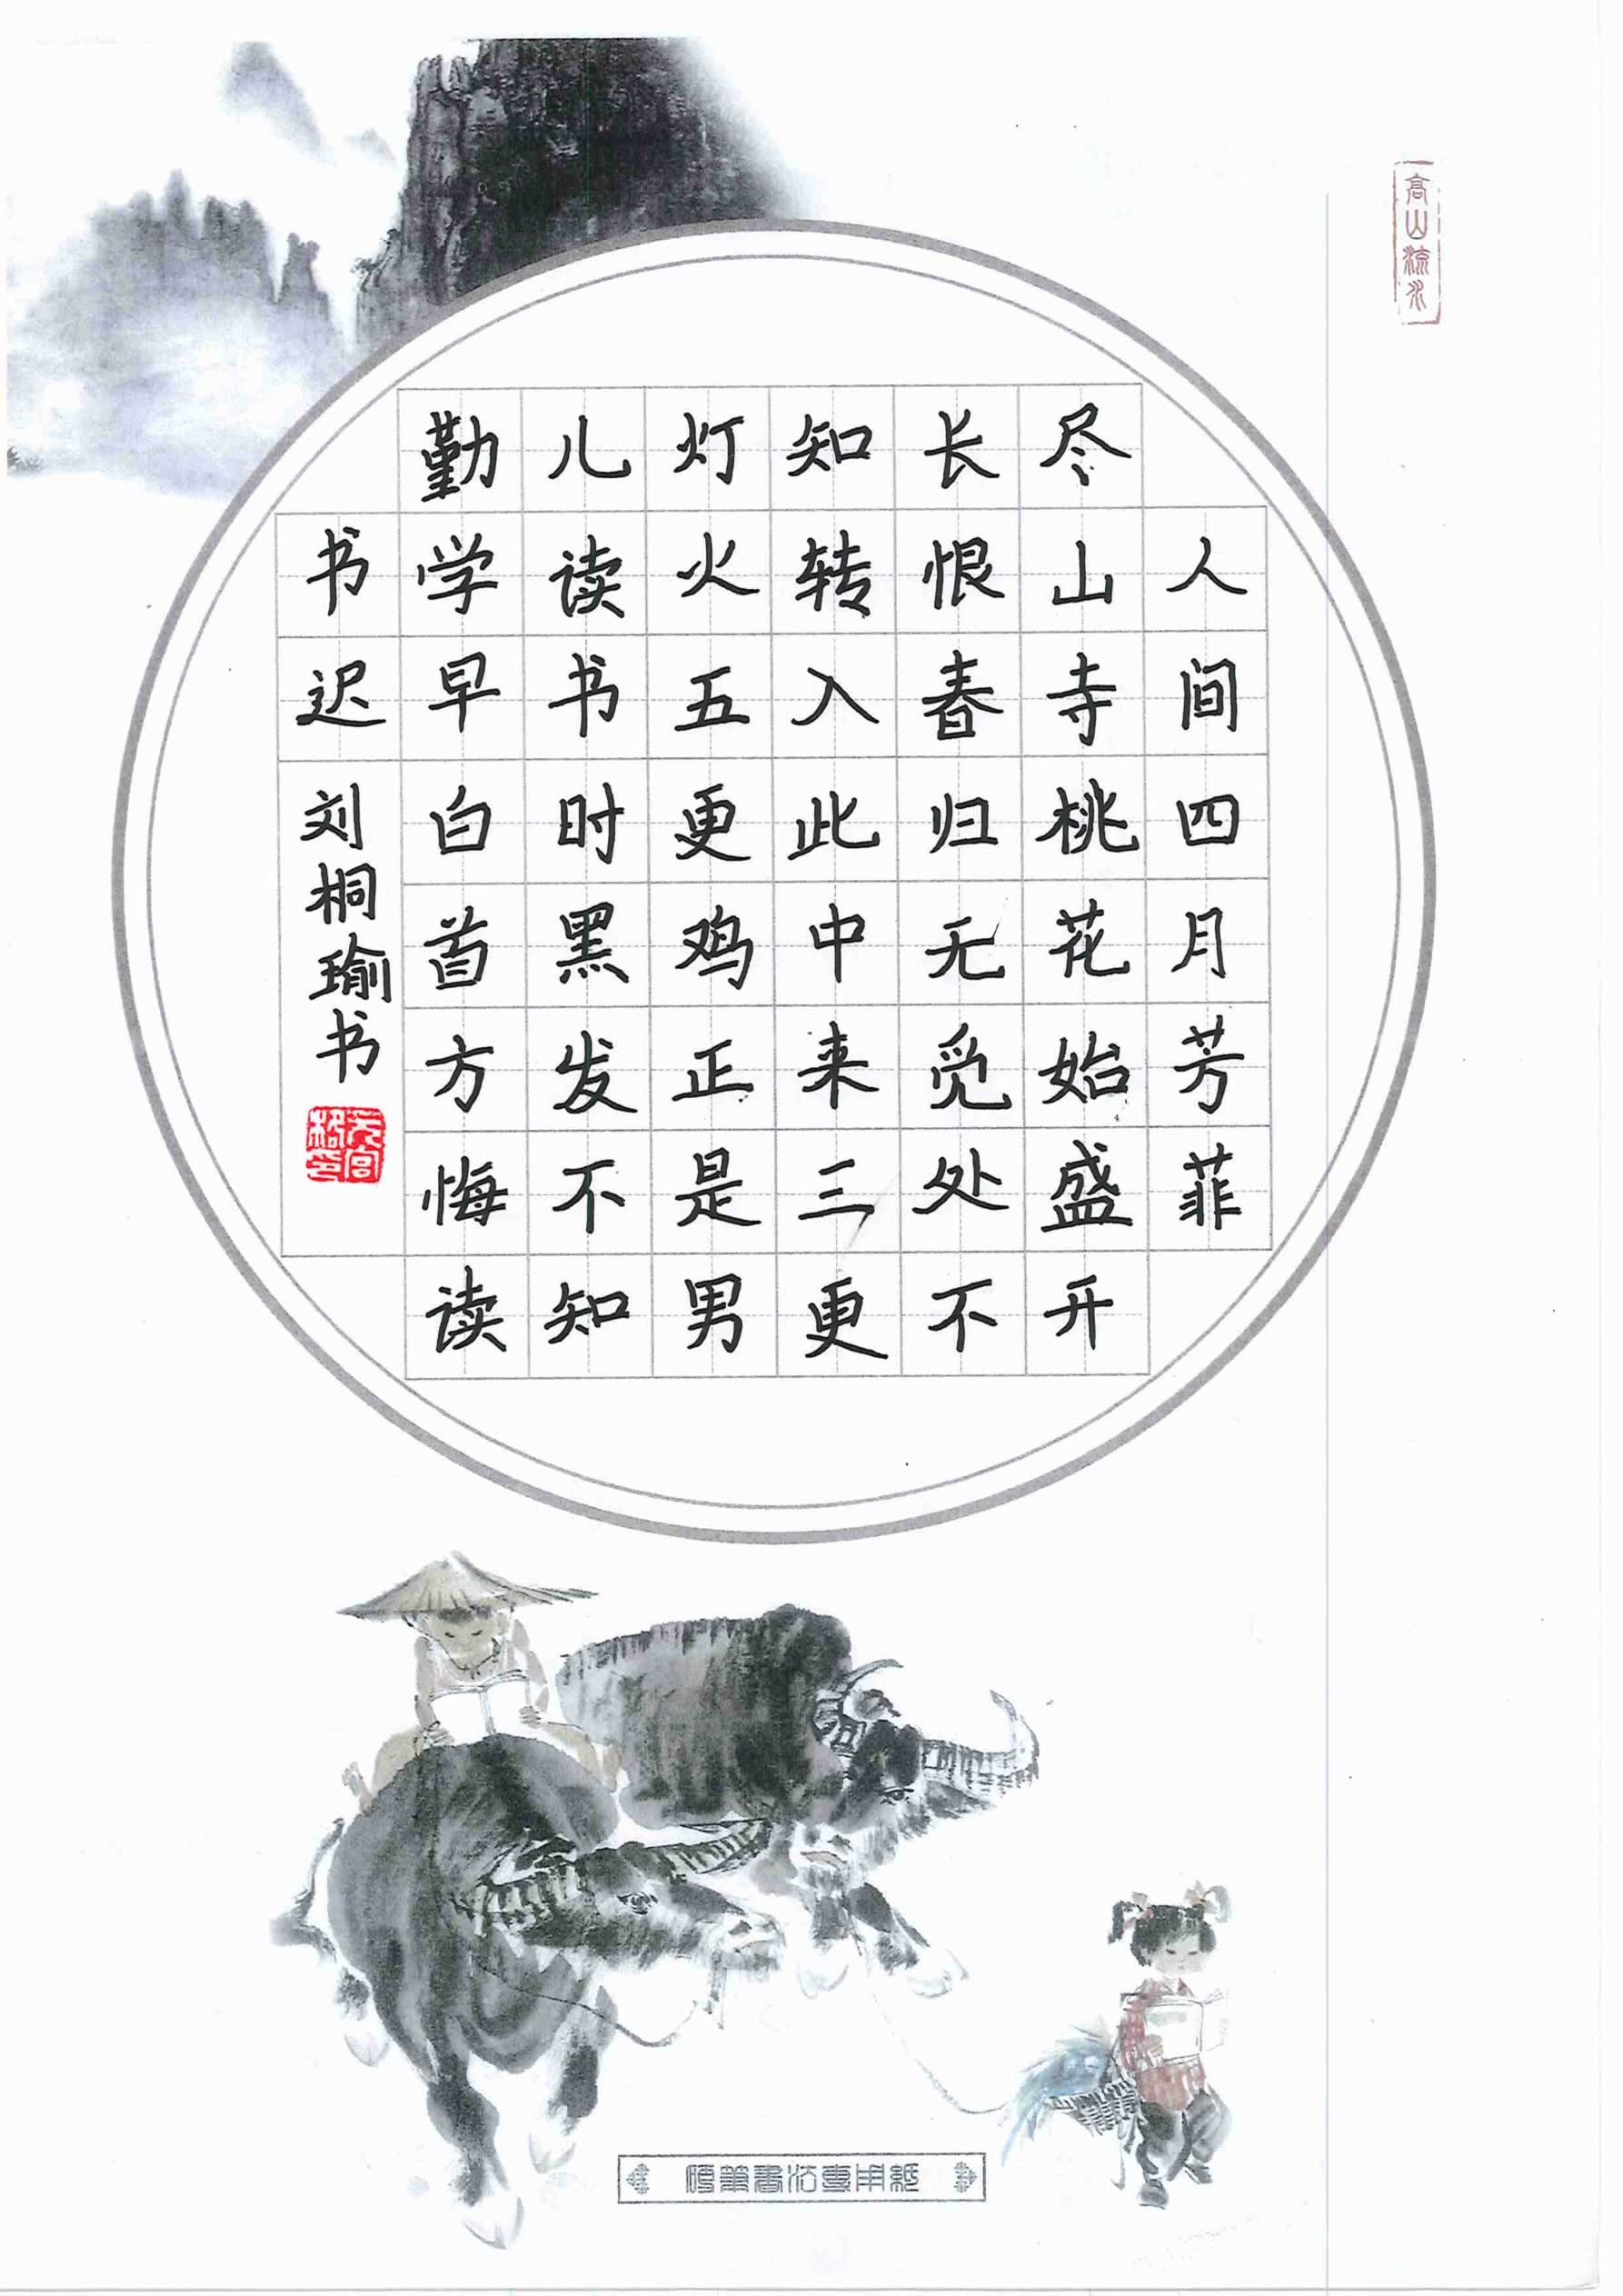 高山流水
人间四月芳菲
尽山寺桃花始盛开
长恨春归无觅处不
知转入此中来三更
灯火五更鸡正是男
儿读书时黑发不知
勤学早白首方悔读
书迟
刘桐瑜书
硬筆書法專用紙